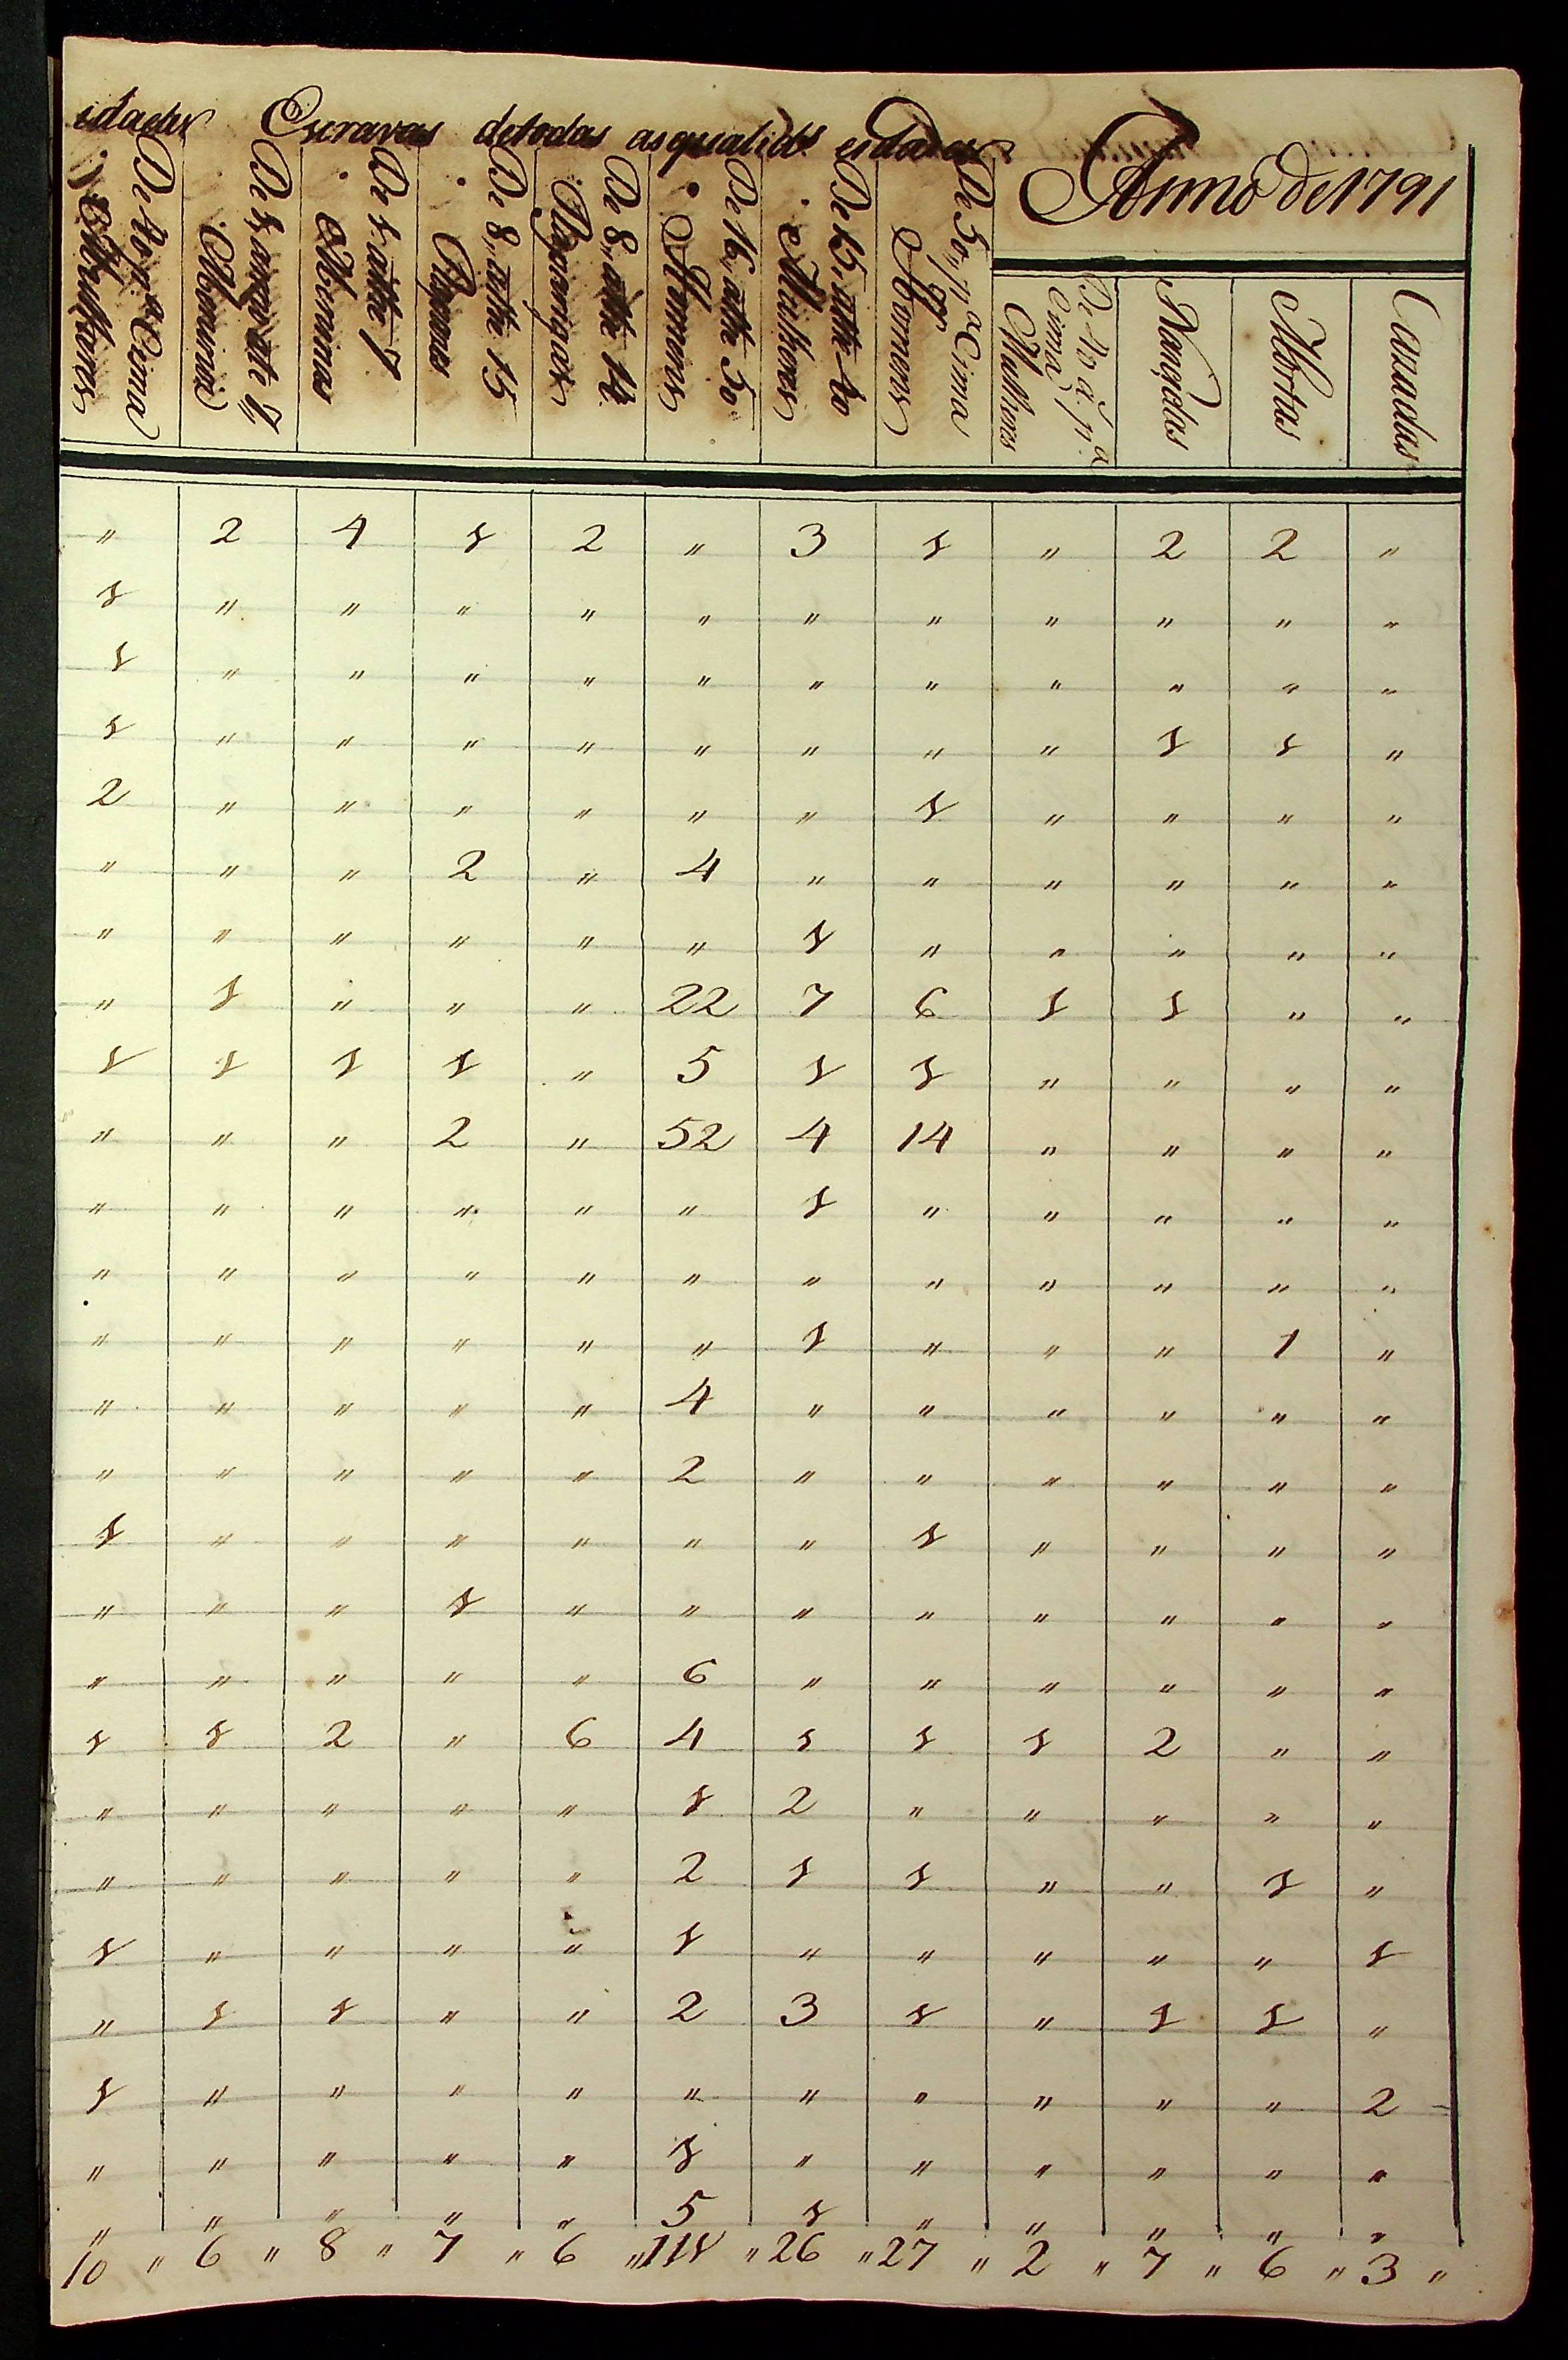 idades Escravas de todas as qualid.s eidades
Anno de 1791
De 40 p.a Cima Mulheres
De 1, anno athe 7 Meninos
De 1, athe 7 Meninas
De 8, athe 15 Rapazes
De 8, athe 14 Raparigas
De 16, athe 50 Homens
De 15, athe 40 Mulheres
De 50, p.a Cima Homens
De 40 a. p.a Cima Mulheres
Nancidas
Mortas
Cazadas
" 2 4 1 2 " 3 1 " 2 2 "
1 " " " " " " " " " " "
1 " " " " " " " " " " "
1 " " " " " " " " 1 1 "
2 " " " " " " 1 " " " "
" " " 2 " 4 " " " " " "
" " " " " " 1 " " " " "
" 1 " " " 22 7 6 1 1 " "
1 1 1 1 " 5 1 1 " " " "
" " " 2 " 52 4 14 " " " "
" " " " " " 1 " " " " "
" " " " " " " " " " " "
" " " " " " 1 " " " 1 "
" " " " " 4 " " " " " "
" " " " " 2 " " " " " "
1 " " " " " " 1 " " " "
" " " 1 " " " " " " " "
" " " " " 6 " " " " " "
1 1 2 " 6 4 1 1 1 2 " "
" " " " " 1 2 " " " " "
" " " " " 2 1 1 " " 1 "
1 " " " " 1 " " " " " 1
" 1 1 " " 2 3 1 " 1 1 "
1 " " " " " " " " " " 2
" " " " " 1 " " " " " "
" " " " " 5 1 " " " " "
10 " 6 " 8 " 7 " 6 " 111 " 26 " 27 " 2 " 7 " 6 " 3 "